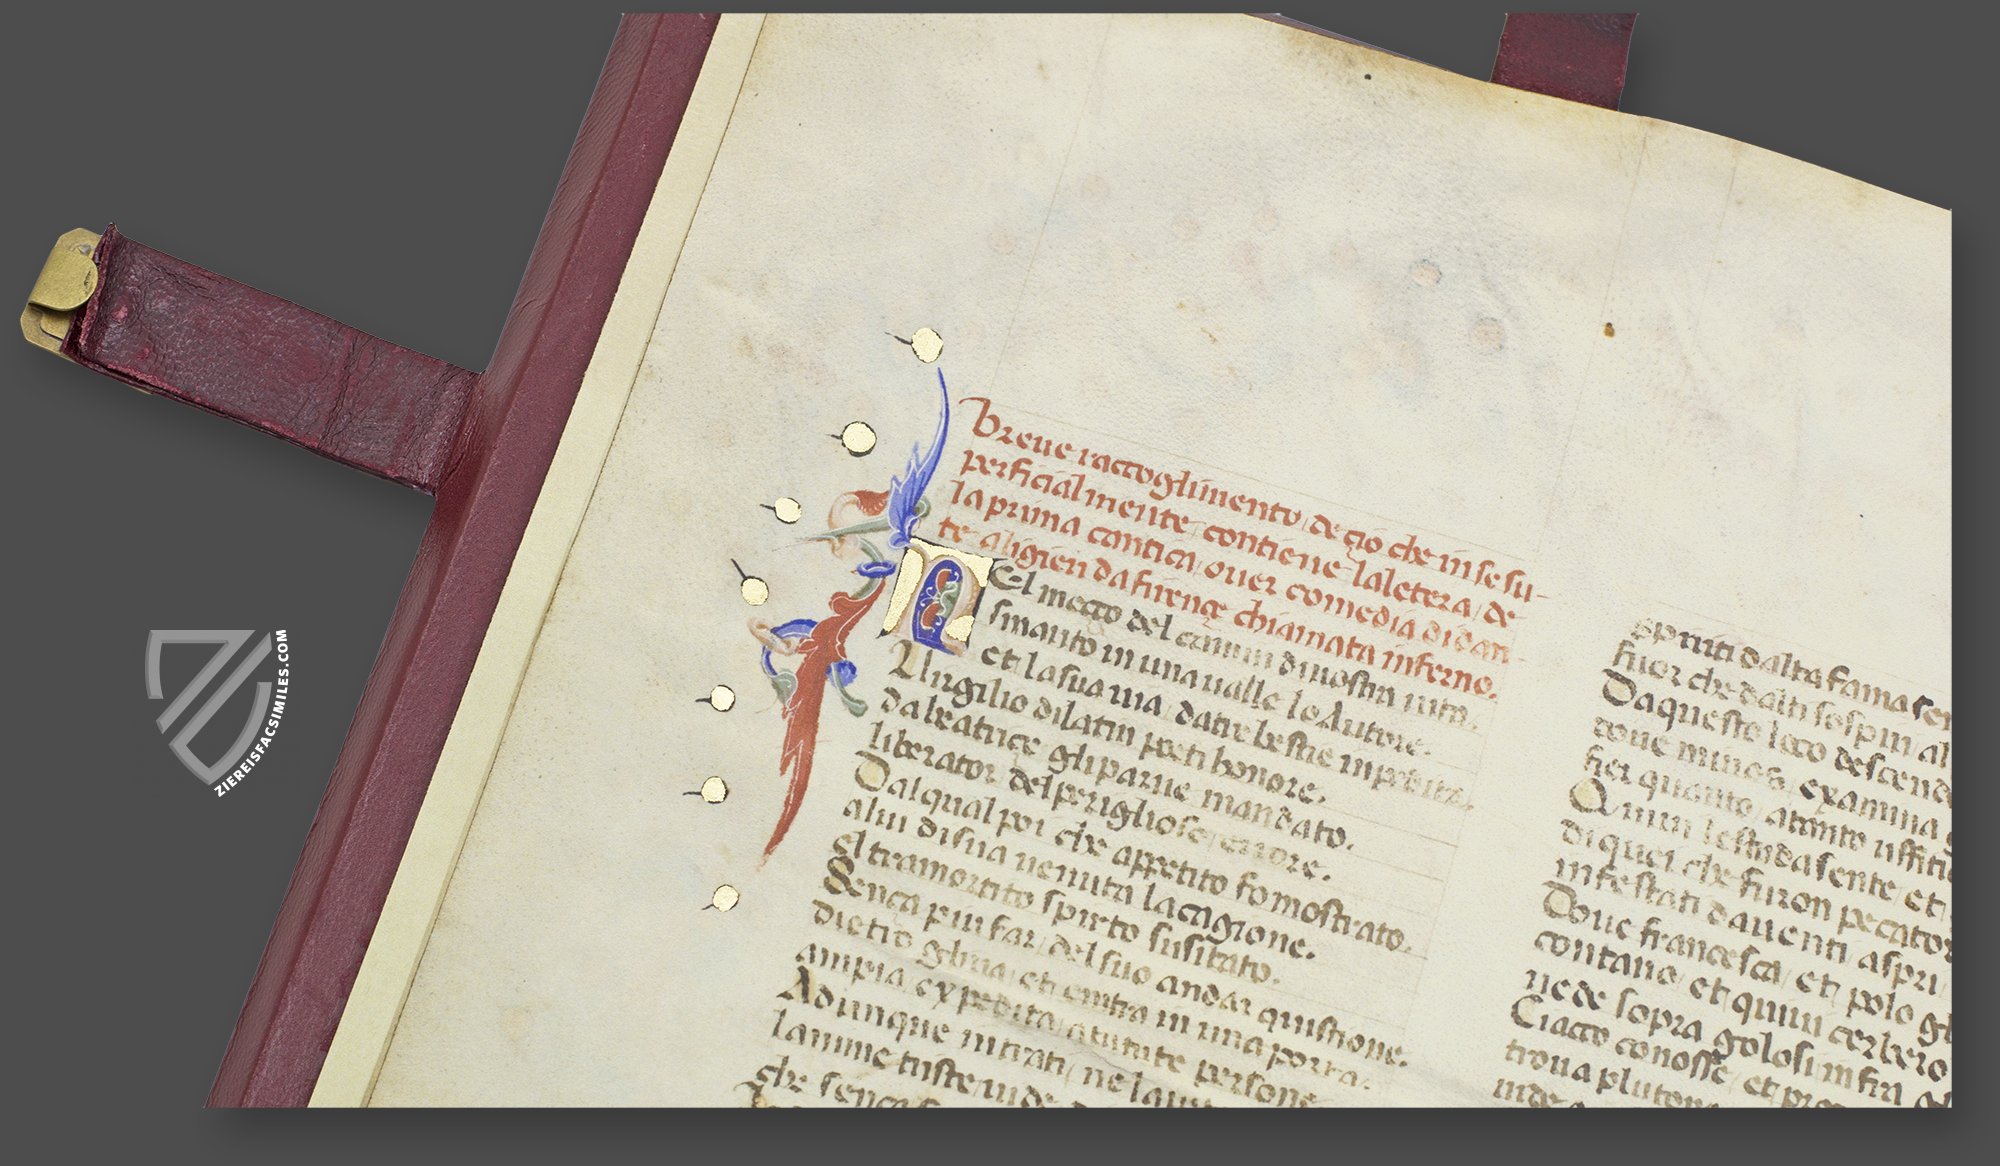 breue raccoglimento, de çio che in se su-
perficialmente contiene laletera, de
la prima cantica, ouer comedia di dan-
te aligieri da firençe chiamata inferno.
Nel meço del camin di nostra uita,
smarito in una ualle lo Autore.
et la sua uia, da tre bestie inpedita.
Uirgilio di latin poeti honore.
da beatriçe gli parue mandato.
liberator del periglioso, errore.
Dal qual poi che apperto fo mostrato.
a lui di sua uenuta la cagione.
el tramortito spirto susitato.
Sença piu far, del suo andar quistione.
dietro gli ua, et entra in una porta.
ampia, expedita, a tutute persone.
Adunque intrati, ne laura
lanime triste uide
che sença
spiriti dalta fama sen
fuor che dalti sospiri, al
Da questo loco descend
doue minos, examina
fier quanto, atanto uffiti
Quiui lesta dasente, et
di quei che furon pecator
infestati da uenti, aspri
Doue francesca, et polo gli
contano, et quiui cerbero
uede sopra golosi infra gl
Ciacco conosse, et pr
troua pluton
inde
ZIEREISFACSIMILES.COM